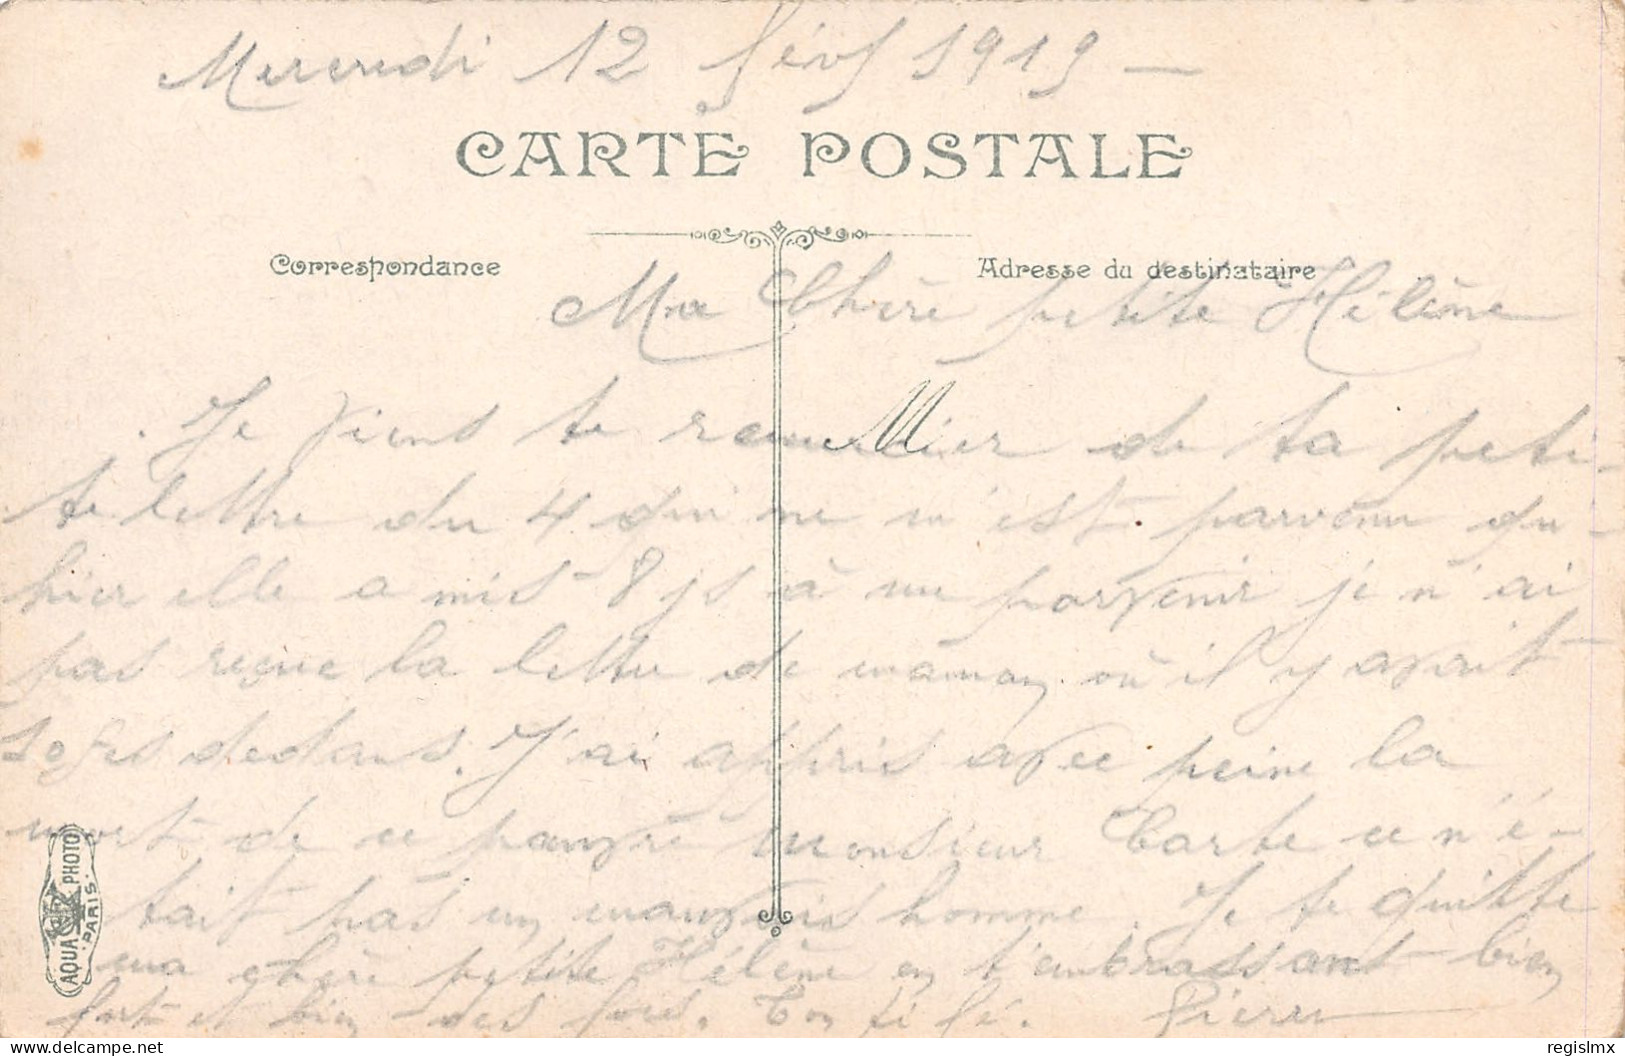 Mercredi 12 févr 1919 —
CARTE POSTALE
Correspondance
Adresse du destinataire
Ma Chère petite Hélène
Je viens te remercier de ta peti-
te lettre du 4 qui ne m'est parvenu qu'
hier elle a mis 8 js à me parvenir je n'ai
pas reçue la lettre de maman où il y avait
dedans. J'ai appris avec peine la
mort de ce pauvre Monsieur Carte ce n'é-
tait pas un mauvais homme. Je te quitte
ma chère petite Hélène en t'embrassant bien
fort et bien des fois. Ton Pierre
AQUA PHOTO
PARIS
regislmx
regislmx